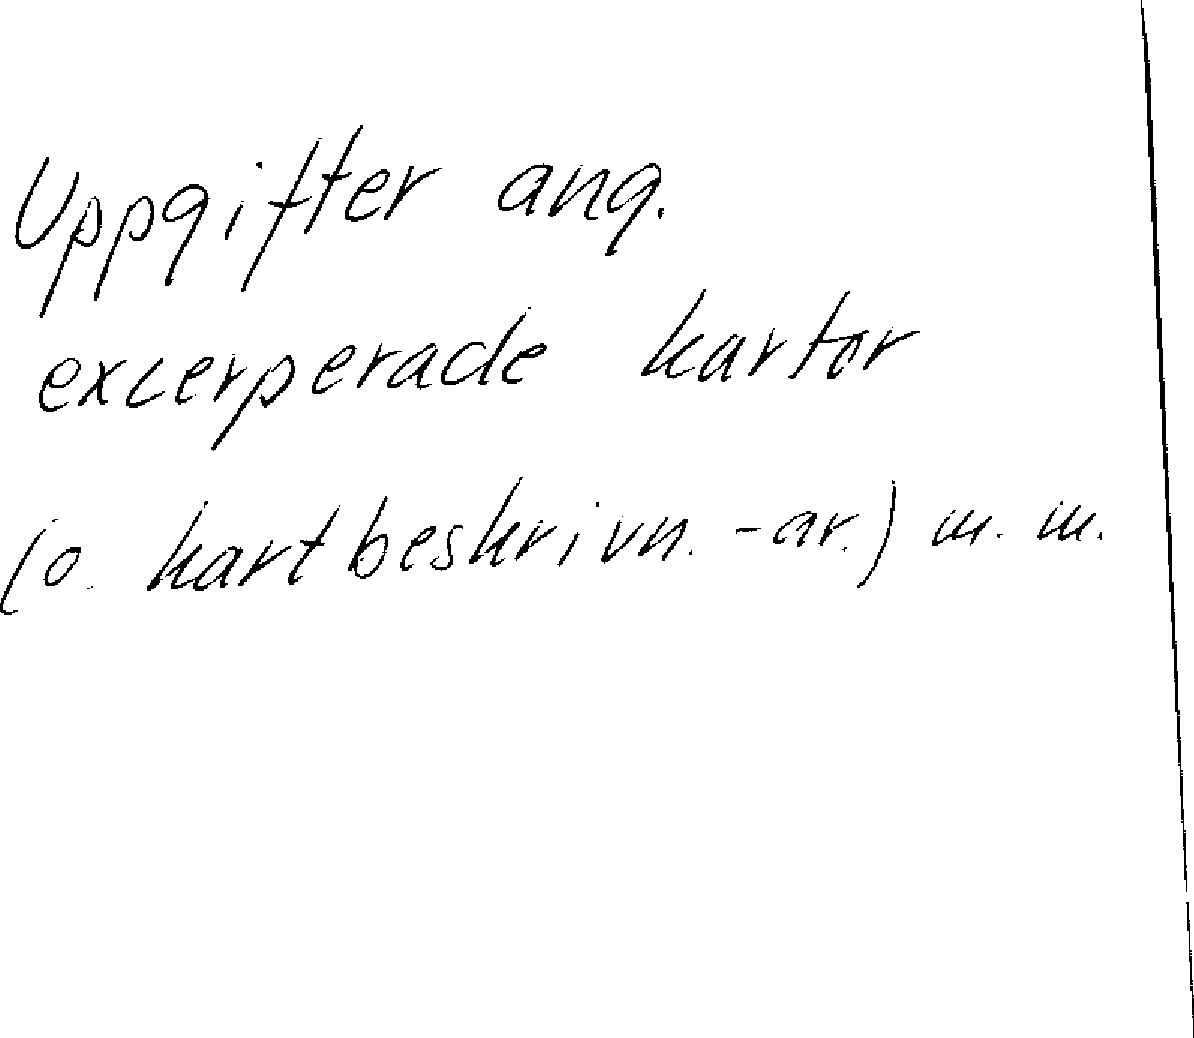 Uppgifter ang.
excerperade kartor
(o. kartbeskrivn. -ar.) m. m.